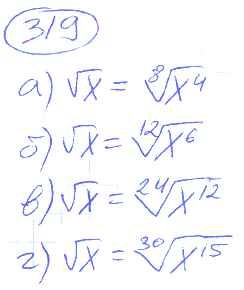 319
а) √x = ⁸√x⁴
б) √x = ¹²√x⁶
в) √x = ²⁴√x¹²
г) √x = ³⁰√x¹⁵